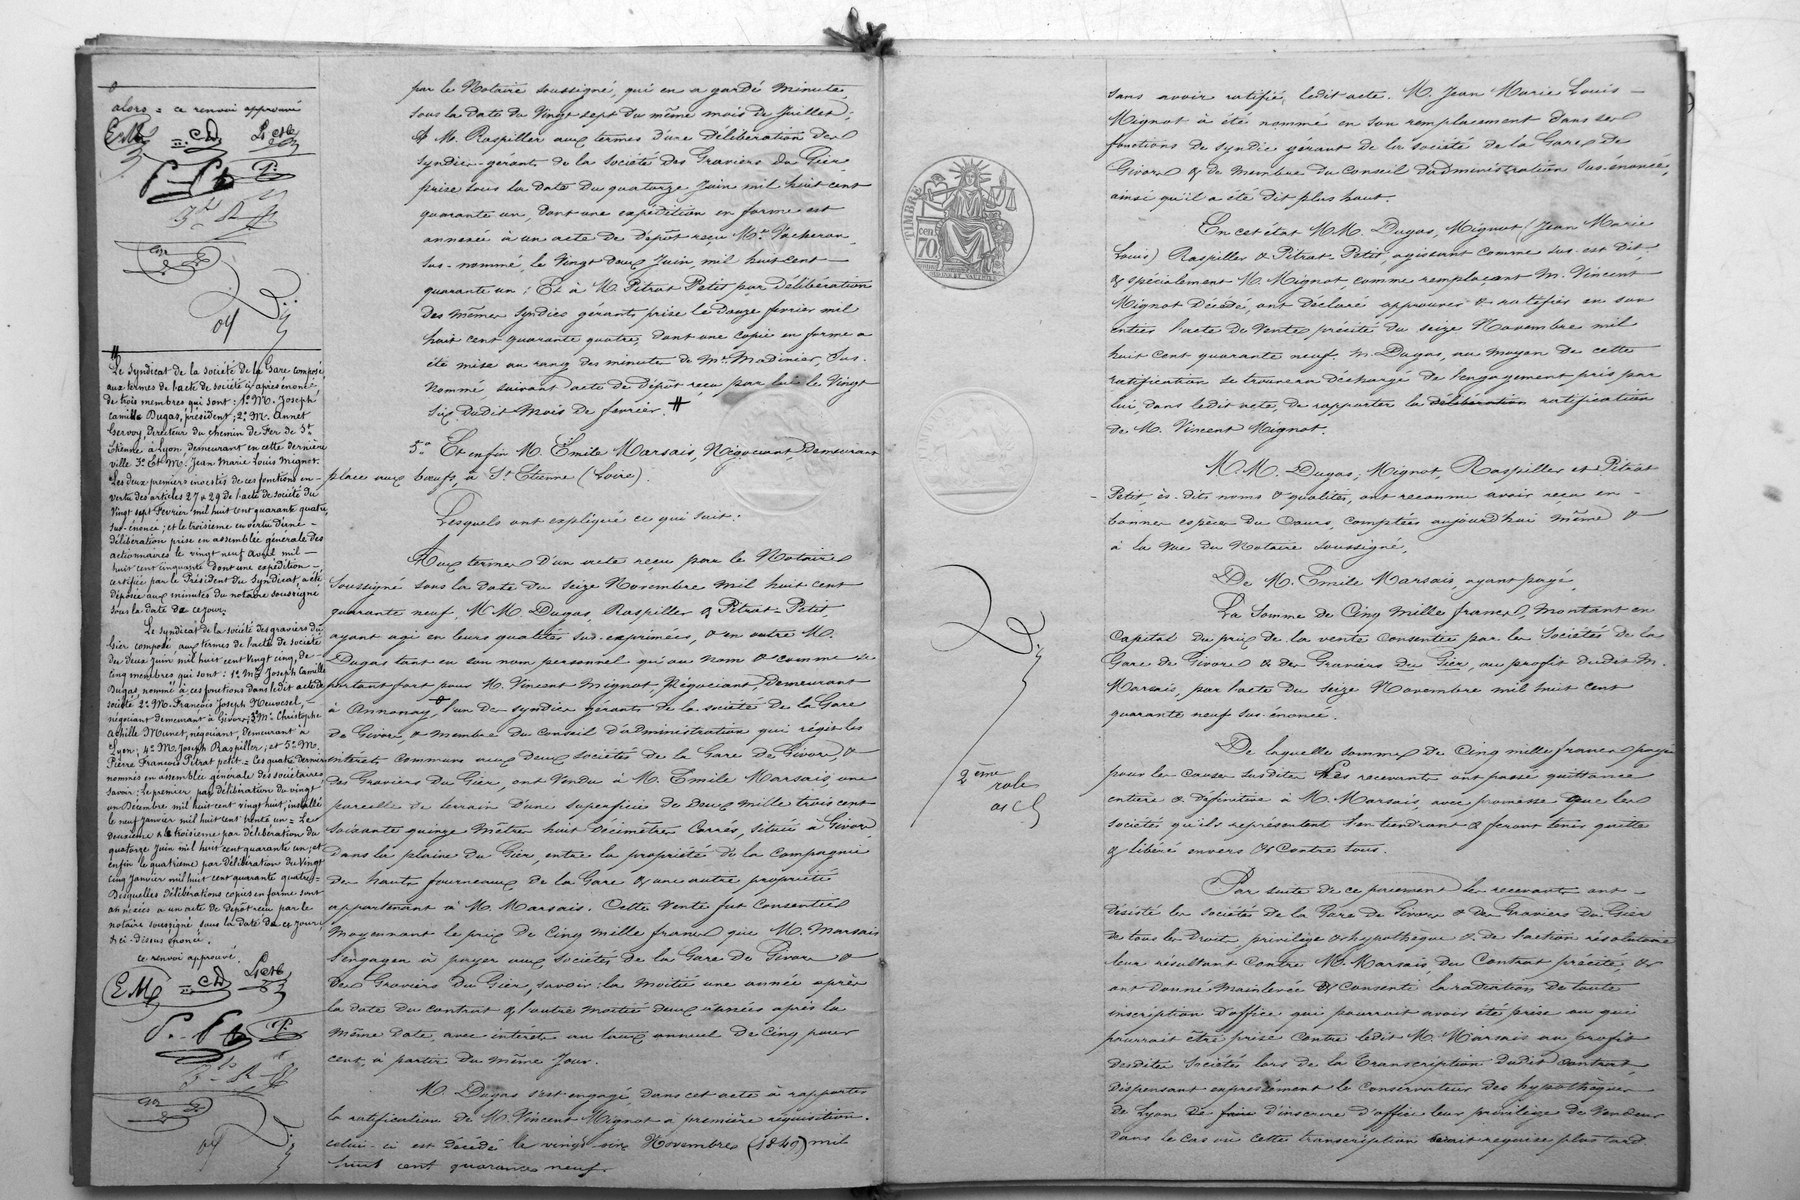 alors = ce renvoi approuvé
#
Le Syndicat de la société de la Gare composé,
aux termes de l'acte de société ci après énoncé
de trois membres qui sont : 1º M. Joseph
Camille Dugas, président ; 2º M. Annet
Gervoy, directeur du chemin de Fer de St.
Etienne à Lyon, demeurant en cette dernière
ville 3º Et M. Jean Marie Louis Mignot.
Les deux premiers investis de ces fonctions en
vertu des articles 27 & 29 de l'acte de société du
Vingt sept Février mil huit cent quarante quatre,
sus-énoncé ; et le troisième en vertu d'une
délibération prise en assemblée générale des
actionnaires le vingt neuf Avril mil
huit cent cinquante dont une expédition
certifiée par le Président du Syndicat, a été
déposée aux minutes du notaire soussigné
sous la date de ce jour.
Le syndicat de la société des graviers du
Gier composé aux termes de l'acte de société
du deux Juin mil huit cent vingt cinq, de
cinq membres qui sont : 1º M. Joseph Camille
Dugas nommé à ces fonctions dans ledit acte de
société 2º M. François Joseph
négociant demeurant à Givors ; 3º M. Christophe
Achille Munet, négociant, demeurant à
Lyon ; 4º M. Joseph Raspiller ; et 5º M.
Pierre François Pitrat petit = Ces quatre derniers
nommés en assemblée générale des sociétaires
savoir ; Le premier par délibération du vingt
un Décembre mil huit cent vingt huit,
le neuf Janvier mil huit cent trente un = Le
deuxième & le troisième par délibération du
quatorze Juin mil huit cent quarante un ; et
enfin le quatrième par délibération du Vingt
cinq Janvier mil huit cent quarante quatre =
Desquelles délibérations copies en forme sont
annexées à un acte de dépôt reçu par le
notaire soussigné sous la date de ce jour
& ci-dessus énoncé.
ce renvoi approuvé.
par le Notaire soussigné, qui en a gardé minute
sous la date du Vingt sept du même mois de Juillet ;
& M. Raspiller aux termes d'une délibération des
syndics-gérants de la société des Graviers du Gier
prise sous la date du quatorze Juin mil huit cent
quarante un, dont une expédition en forme est
annexée à un acte de dépôt reçu Me. Vacheron,
sus-nommé, le Vingt deux Juin, mil huit cent
quarante un ; Et à M. Pitrat Petit par délibération
des mêmes Syndics gérants prise le Douze février mil
huit cent quarante quatre, dont une copie en forme a
été mise au rang des minutes de Me. Madinier, sus-
nommé, suivant acte de dépôt reçu par lui le Vingt
six dudit mois de février. #
5º Et enfin M. Emile Marsais, Négociant, Demeurant
place aux bœufs, à St. Etienne (Loire).
Lesquels ont expliqué ce qui suit :
Aux termes d'un acte reçu par le Notaire
Soussigné sous la date du seize Novembre mil huit cent
quarante neuf, M.M. Dugas, Raspiller & Pitrat-Petit
ayant agi en leurs qualités sus-exprimées, & en outre M.
Dugas tant en son nom personnel qu'au nom & comme se
portant fort pour M. Vincent Mignot, Négociant, Demeurant
à Annonay, l'un des syndics gérants de la société de la Gare
de Givors, & membre du Conseil d'administration qui régit les
intérêts communs aux deux sociétés de la Gare de Givors, &
des Graviers du Gier, ont Vendu à M. Emile Marsais, une
parcelle de terrain d'une superficie de deux mille trois cent
soixante quinze mètres huit décimètres carrés, située à Givors
dans la plaine du Gier, entre la propriété de la Compagnie
des hauts fourneaux de la Gare & une autre propriété
appartenant à M. Marsais. Cette Vente fut consentie
moyennant le prix de cinq mille francs que M. Marsais
s'engagea à payer aux sociétés de la Gare de Givors &
des Graviers du Gier, savoir : la moitié une année après
la date du contrat & l'autre moitié deux années après la
même date, avec intérêts au taux annuel de cinq pour
cent, à partir du même jour.
M. Dugas s'est engagé, dans cet acte à rapporter
la ratification de M. Vincent Mignot à première réquisition.
celui-ci est décédé le vingt-six Novembre (1849) mil
huit cent quarante neuf
TIMBRE
70 cen
2ème
role
sans avoir ratifié ledit acte. M. Jean Marie Louis
Mignot a été nommé en son remplacement dans ses
fonctions de syndic gérant de la société de la Gare de
Givors & de membre du Conseil d'administration sus-énoncé,
ainsi qu'il a été dit plus haut.
En cet état M.M. Dugas, Mignot (Jean Marie
Louis) Raspiller & Pitrat-Petit, agissant comme sus-est dit,
& spécialement M. Mignot, comme remplaçant M. Vincent
Mignot décédé, ont déclaré approuver & ratifier en son
entier l'acte de Vente précité du seize Novembre mil
huit cent quarante neuf. M. Dugas, au moyen de cette
ratification se trouvera déchargé de l'engagement pris par
lui dans ledit acte, de rapporter la délibération ratification
de M. Vincent Mignot.
M.M. Dugas, Mignot, Raspiller et Pitrat
Petit, ès-dits noms & qualités, ont reconnu avoir reçu en
bonnes espèces du Cours, comptées aujourd'hui même &
à la vue du Notaire soussigné,
De M. Emile Marsais, ayant payé,
La Somme de Cinq Mille francs, montant en
Capital du prix de la vente consentie par les Sociétés de la
Gare de Givors & des Graviers du Gier, au profit dudit M.
Marsais, par l'acte du seize Novembre mil huit cent
quarante neuf sus-énoncé.
De laquelle somme de Cinq mille francs payée
pour les causes susdites les recevants ont passé quittance
entière & définitive à M. Marsais, avec promesse que les
sociétés qu'ils représentent l'en tiendront & feront tenir quitte
& libéré envers & contre tous.
Par suite de ce paiement les recevants ont
désisté les sociétés de la Gare de Givors & des Graviers du Gier
de tous les droits, privilège & hypothèque & de l'action résolutoire
leur résultant contre M. Marsais, du Contrat précité, &
ont donné mainlevée & consenti la radiation de toute
inscription d'office qui pourrait avoir été prise ou qui
pourrait être prise contre ledit M. Marsais au profit
desdites Sociétés lors de la Transcription dudit contrat,
dispensant expressément le conservateur des hypothèques
de Lyon de faire d'inscrire d'office leur privilège de Vendeur
dans le cas où cette transcription serait requise plus tard.